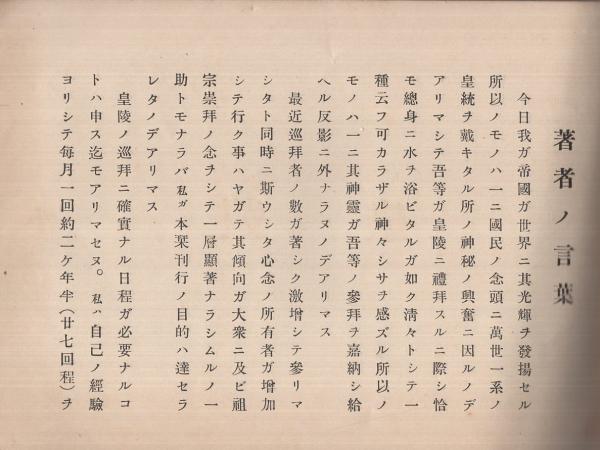 著者ノ言葉
今日我ガ帝國ガ世界ニ其光輝ヲ發揚セル
所以ノモノハ一ニ國民ノ念頭ニ萬世一系ノ
皇統ヲ戴キタル所ノ神秘ノ興奮ニ因ルノデ
アリマシテ吾等ガ皇陵ニ禮拜スルニ際シ恰
モ總身ニ水ヲ浴ビタルガ如ク淸々トシテ一
種云フ可カラザル神々シサヲ感ズル所以ノ
モノハ一ニ其神靈ガ吾等ノ參拜ヲ嘉納シ給
ヘル反影ニ外ナラヌノデアリマス
最近巡拜者ノ數ガ著シク激增シテ參リマ
シタト同時ニ斯ウシタ心念ノ所有者ガ增加
シテ行ク事ハヤガテ其傾向ガ大衆ニ及ビ祖
宗崇拜ノ念ヲシテ一層顯著ナラシムルノ一
助トモナラバ私ガ本栞刊行ノ目的ハ達セラ
レタノデアリマス
皇陵ノ巡拜ニ確實ナル日程ガ必要ナルコ
トハ申ス迄モアリマセヌ。私ハ自己ノ經驗
ヨリシテ每月一回約二ケ年半(廿七回程)ヲ